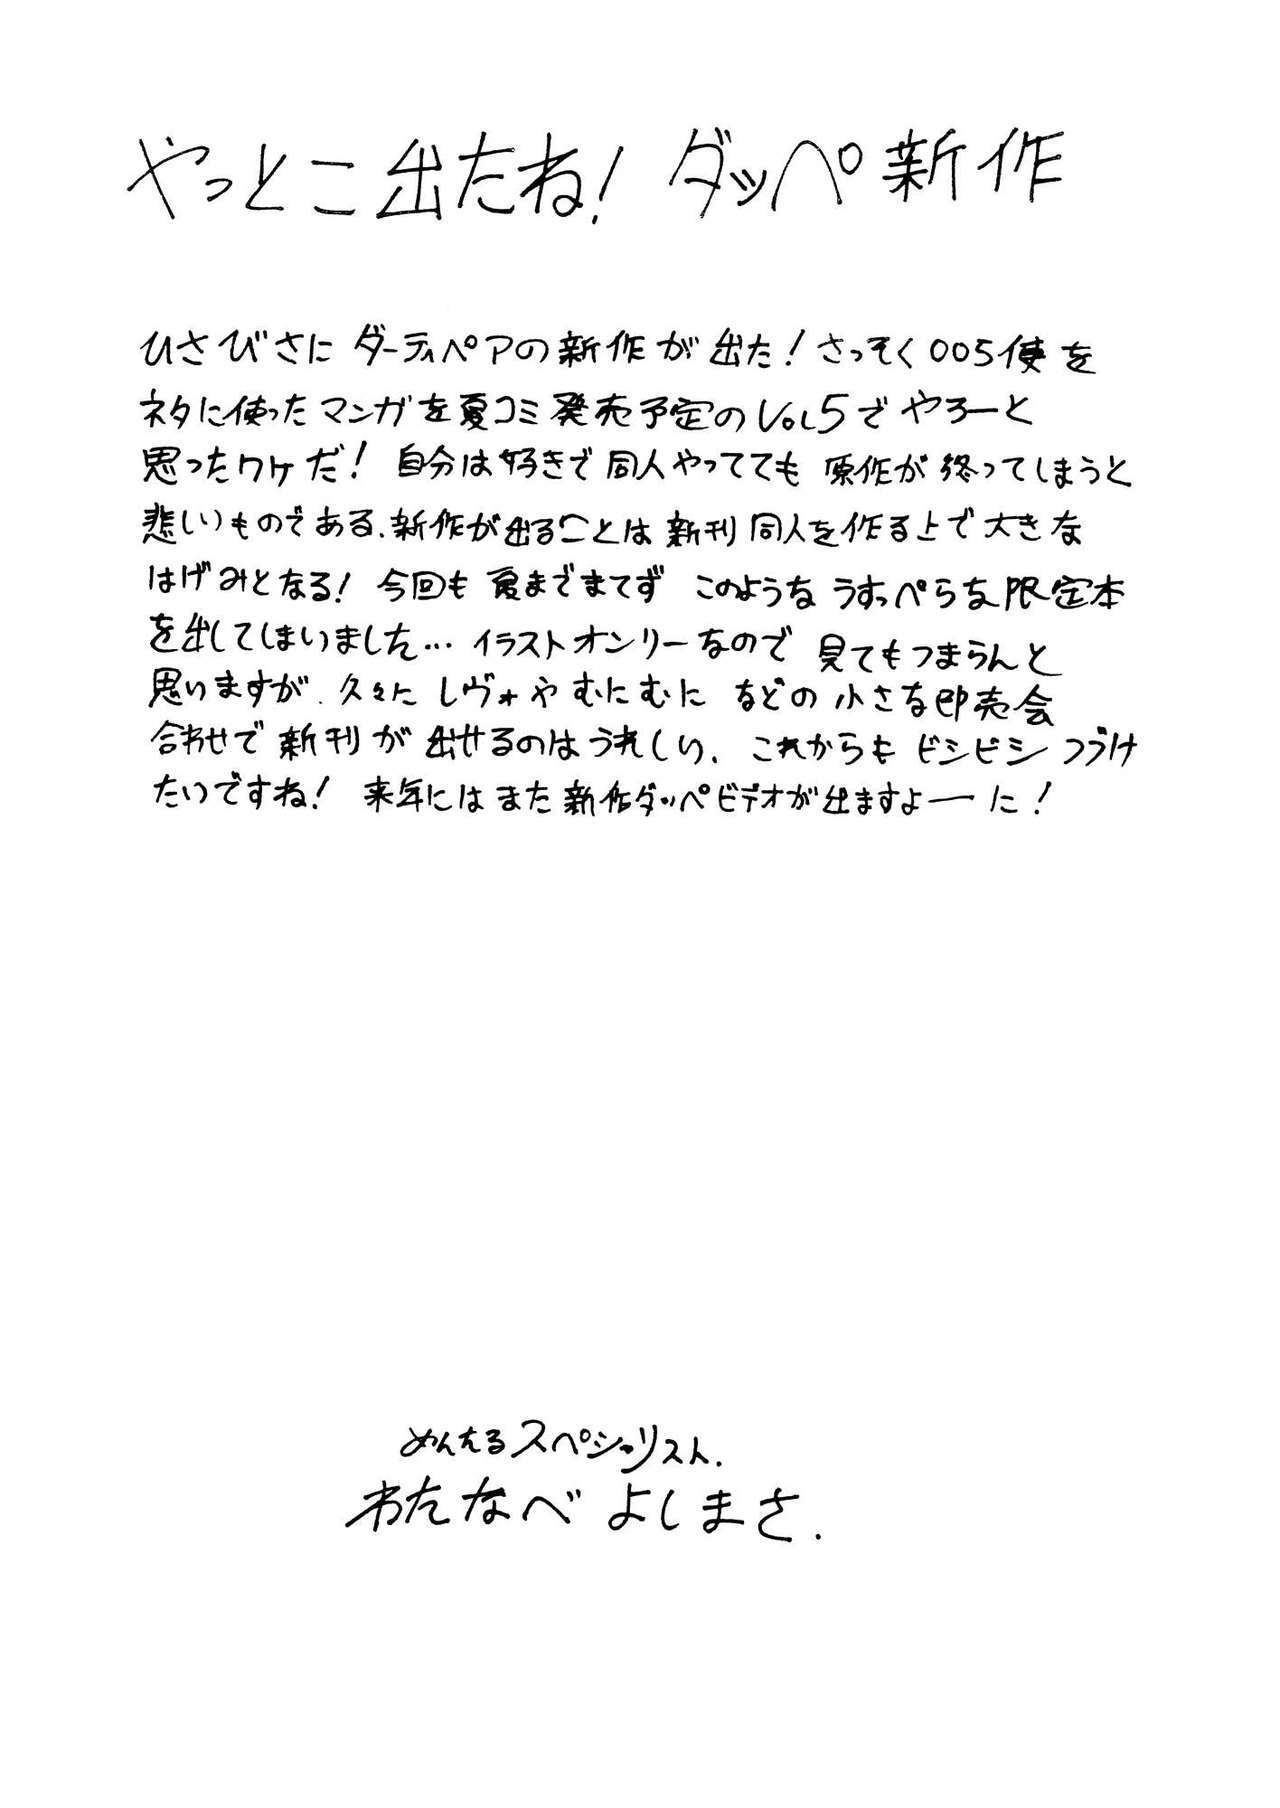 やっとこ出たね！ダッペ新作
ひさびさに ダーティペアの新作が出た！さっそく005便を
ネタに使ったマンガを夏コミ発売予定のVOL5でやろーと
思ったワケだ！ 自分は好きで同人やってても 原作が終ってしまうと
悲しいものである.新作が出ることは新刊同人を作る上で大きな
はげみとなる！ 今回も夏までまてず このような うすっぺらな限定本
を出してしまいました… イラストオンリーなので 見てもつまらんと
思いますが. 久々に レヴォや むにむに などの 小さな即売会
合わせで 新刊が 出せるのはうれしい. これからも ビシビシつづけ
たいですね！ 来年にはまた新作ダッペビデオが出ますよーに！
めんたるスペシャリスト.
わたなべ よしまさ.